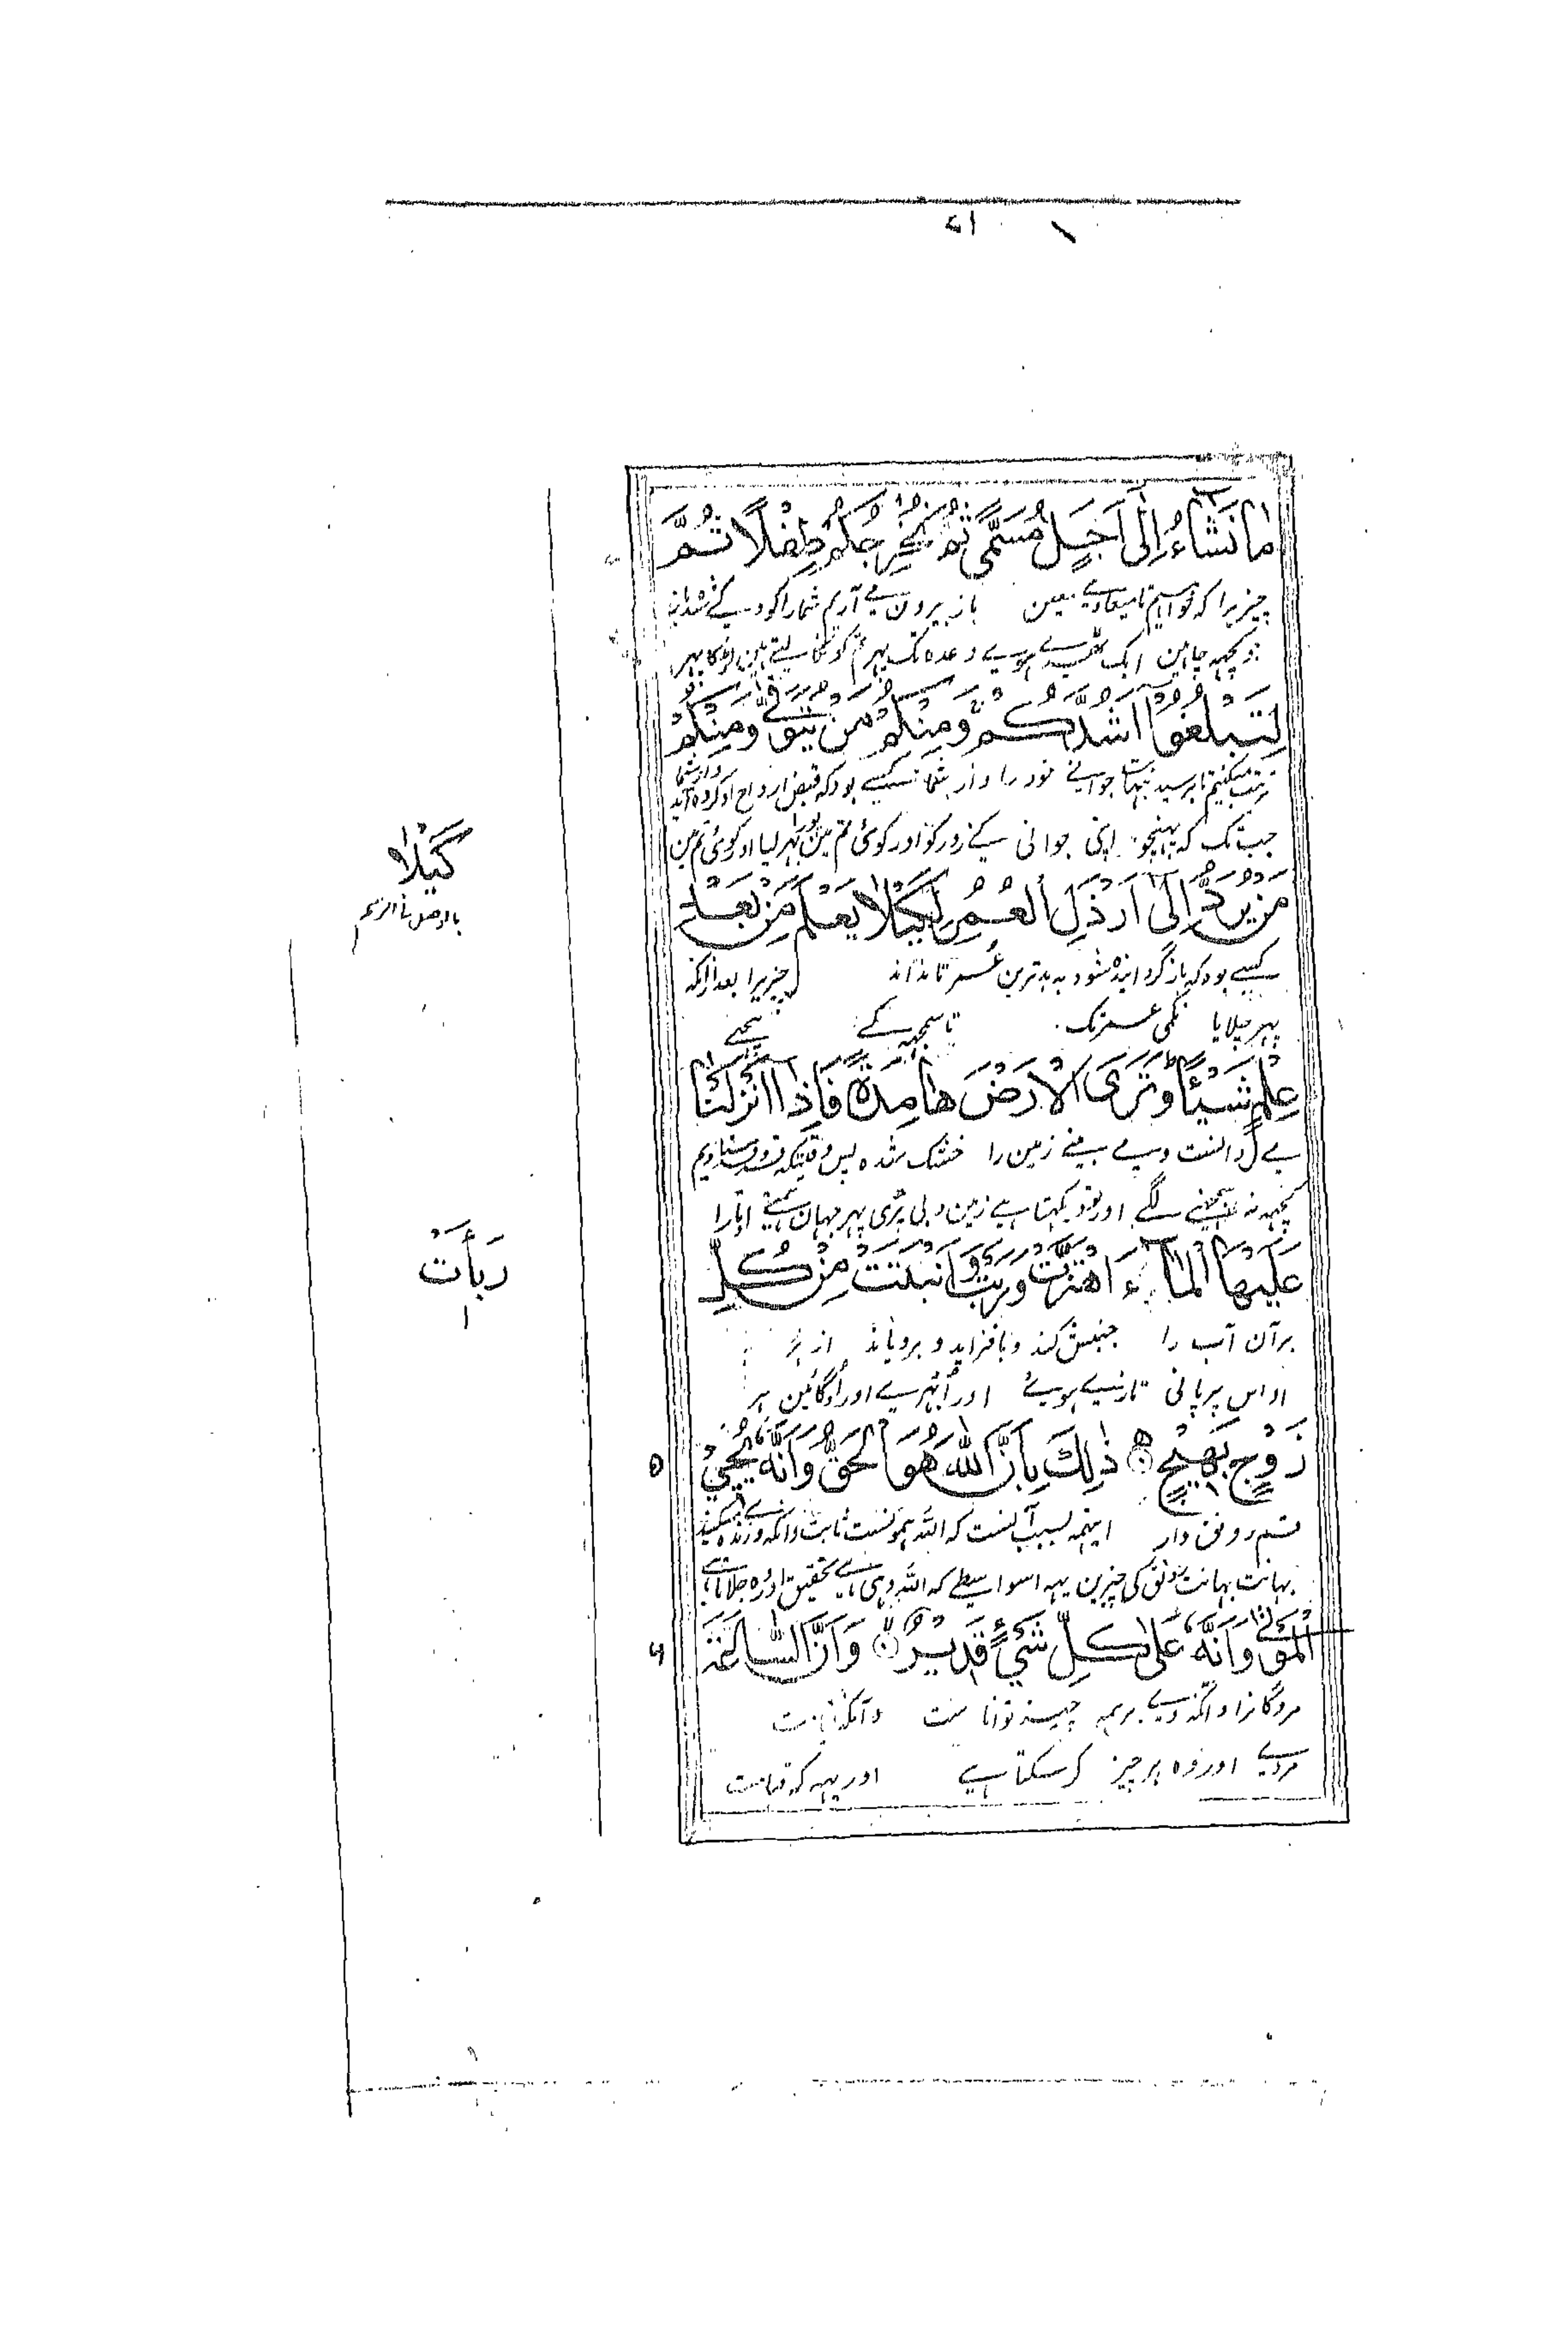 مَا نَشَاءُ اِلٰى اَجَلٍ مُسَمًّى ثُمَّ نُخْرِجُكُمْ طِفْلًا ثُمَّ
چیزیرا که خواهیم تا میعادے معین باز بیرون مے آریم شمارا کودک
جو کچہہ چاہین ایک وعدہ تک پہر تم کو نکالتے ہین لڑکا پہر
لِتَبْلُغُوْا اَشُدَّكُمْ وَمِنْكُمْ مَنْ يُتَوَفّٰى وَمِنْكُمْ
جوانے خود را و از شما کسے بود که قبض ارواح او کرده آید
جب تک کہ پہنچو اپنی جوانی کے زور کو اور کوئی تم مین پورا بہر لیا اور کوئی تم مین
مَنْ يُرَدُّ اِلٰى اَرْذَلِ الْعُمُرِ لِكَيْلَا يَعْلَمَ مِنْ بَعْدِ
کسے بود که باز گردانیده شود به بدترین عمر تا نداند چیزیرا بعد ازانکه
پہر چلایا نکمی عمر تک تا سمجہہ کے پیچہے
عِلْمٍ شَيْئًا وَتَرَى الْاَرْضَ هَامِدَةً فَاِذَا اَنْزَلْنَا
مے دانست و مے بینے زمین را خشک شده پس وقتیکه فرو فرستادیم
کچہہ نہ سمجہنے لگے اور تو دیکہتا ہے زمین دبی پڑی پہر جہان ہمنے اتارا
عَلَيْهَا الْمَاءَ اهْتَزَّتْ وَرَبَتْ وَاَنْبَتَتْ مِنْ كُلِّ
برآن آب را جنبش کند و بافزاید و برویاند از هر
اس پر پانی تازے ہوئے اور ابہرے اور اُگائین ہر
زَوْجٍ بَهِيْجٍ ۝ ذٰلِكَ بِاَنَّ اللّٰهَ هُوَ الْحَقُّ وَاَنَّهٗ يُحْيِ
۵
قسم رونق دار اینهمه بسبب آنست که الله هموست ثابت و آنکه وے زنده میکند
بہانت بہانت رونق کی چیزین یہہ اسواسطے کہ اللہ وہی ہے تحقیق اور وہ جلاتا ہے
الْمَوْتٰى وَاَنَّهٗ عَلٰى كُلِّ شَيْءٍ قَدِيْرٌ ۝ وَاَنَّ السَّاعَةَ
۶
مردگانرا و آنکه وے بر همه چیز توانا ست و آنکه قیامت
مردے اور وہ ہر چیز کر سکتا ہے اور یہہ کہ قیامت
كَيْلَا
رَبَأَتْ